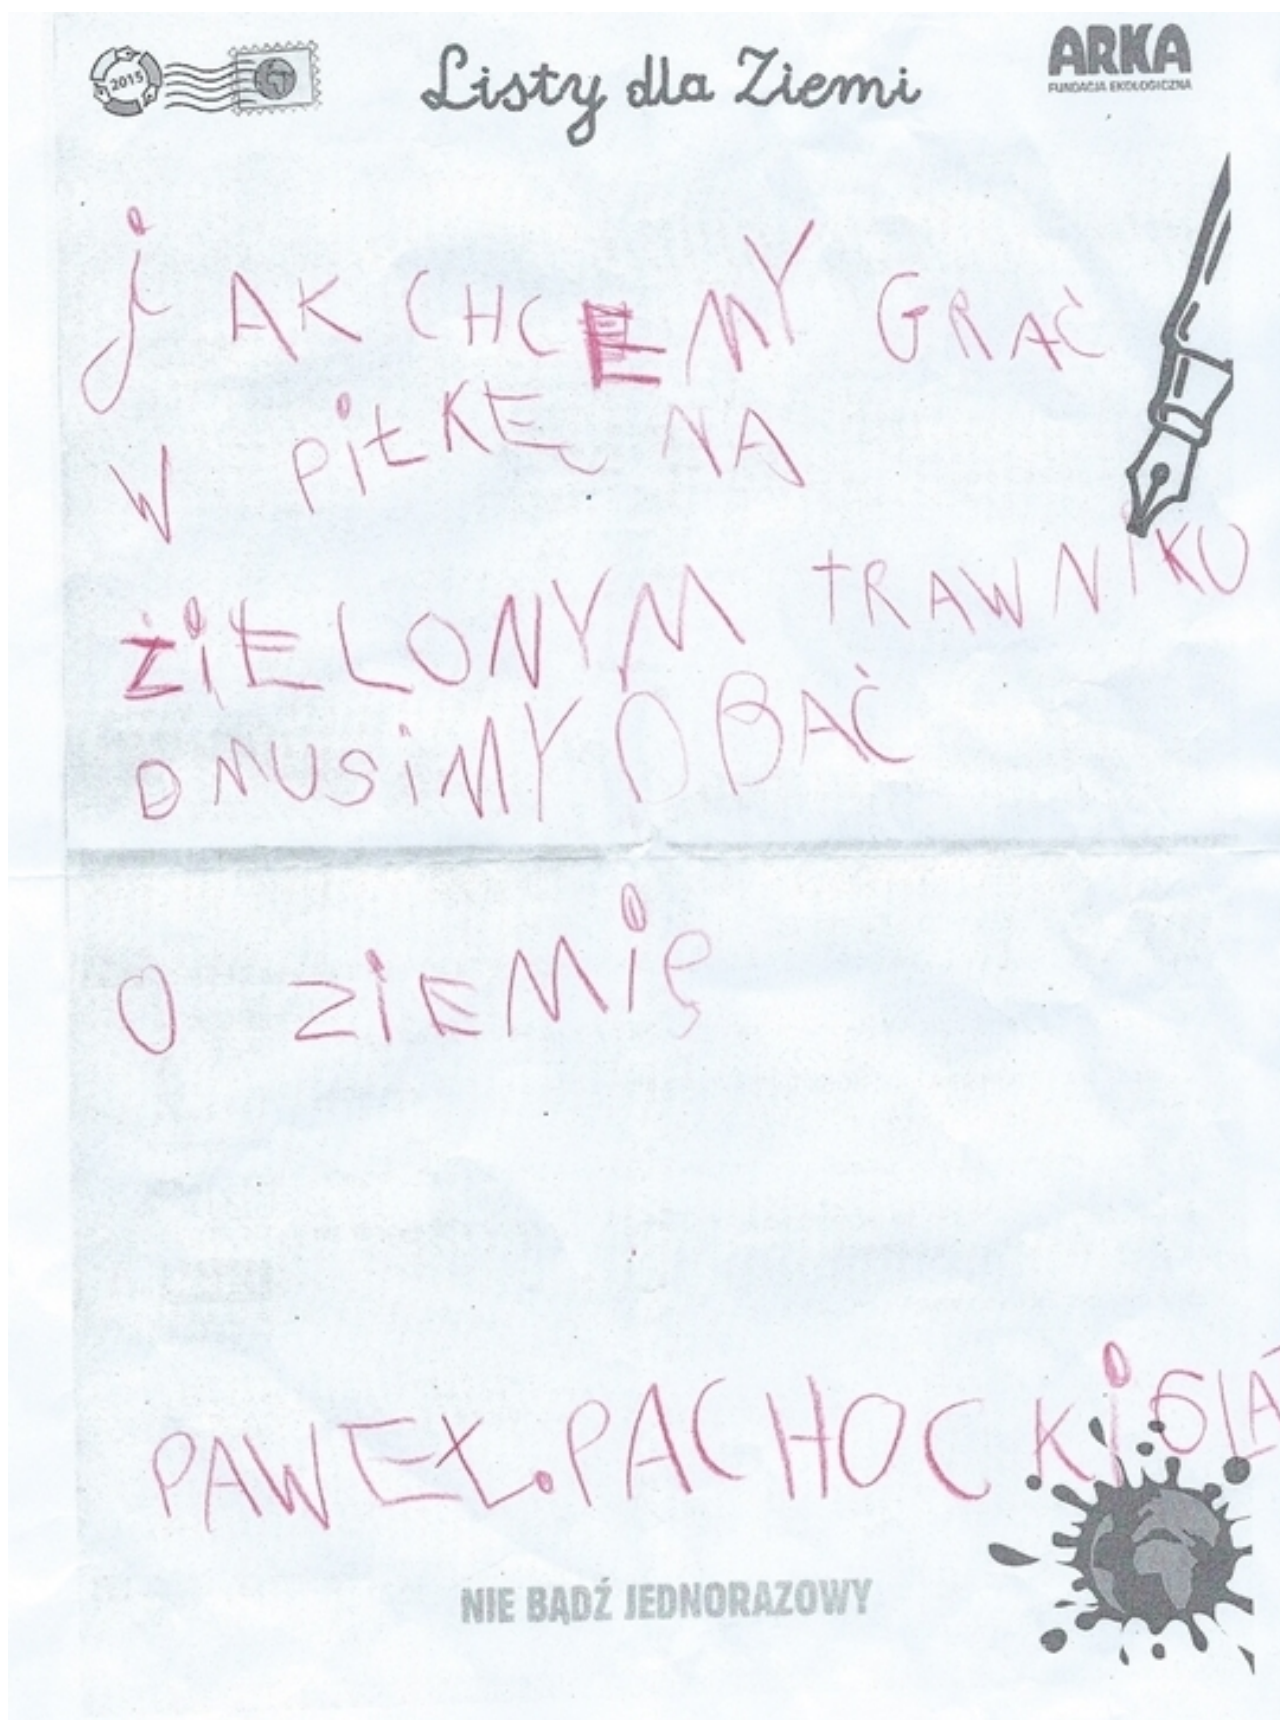 2015
Listy dla Ziemi
ARKA
FUNDACJA EKOLOGICZNA
jAK CHCEMY GRAĆ
W PiŁKĘ NA
ŻiELONYM tRAWNiKU
D MUSiMY DBAĆ
O ZiEMię
PAWEŁ.PACHOCKi 6LA
NIE BĄDŹ JEDNORAZOWY